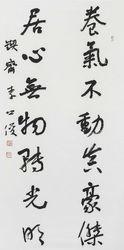 養氣不動真豪傑
居心無物轉光明
齋李